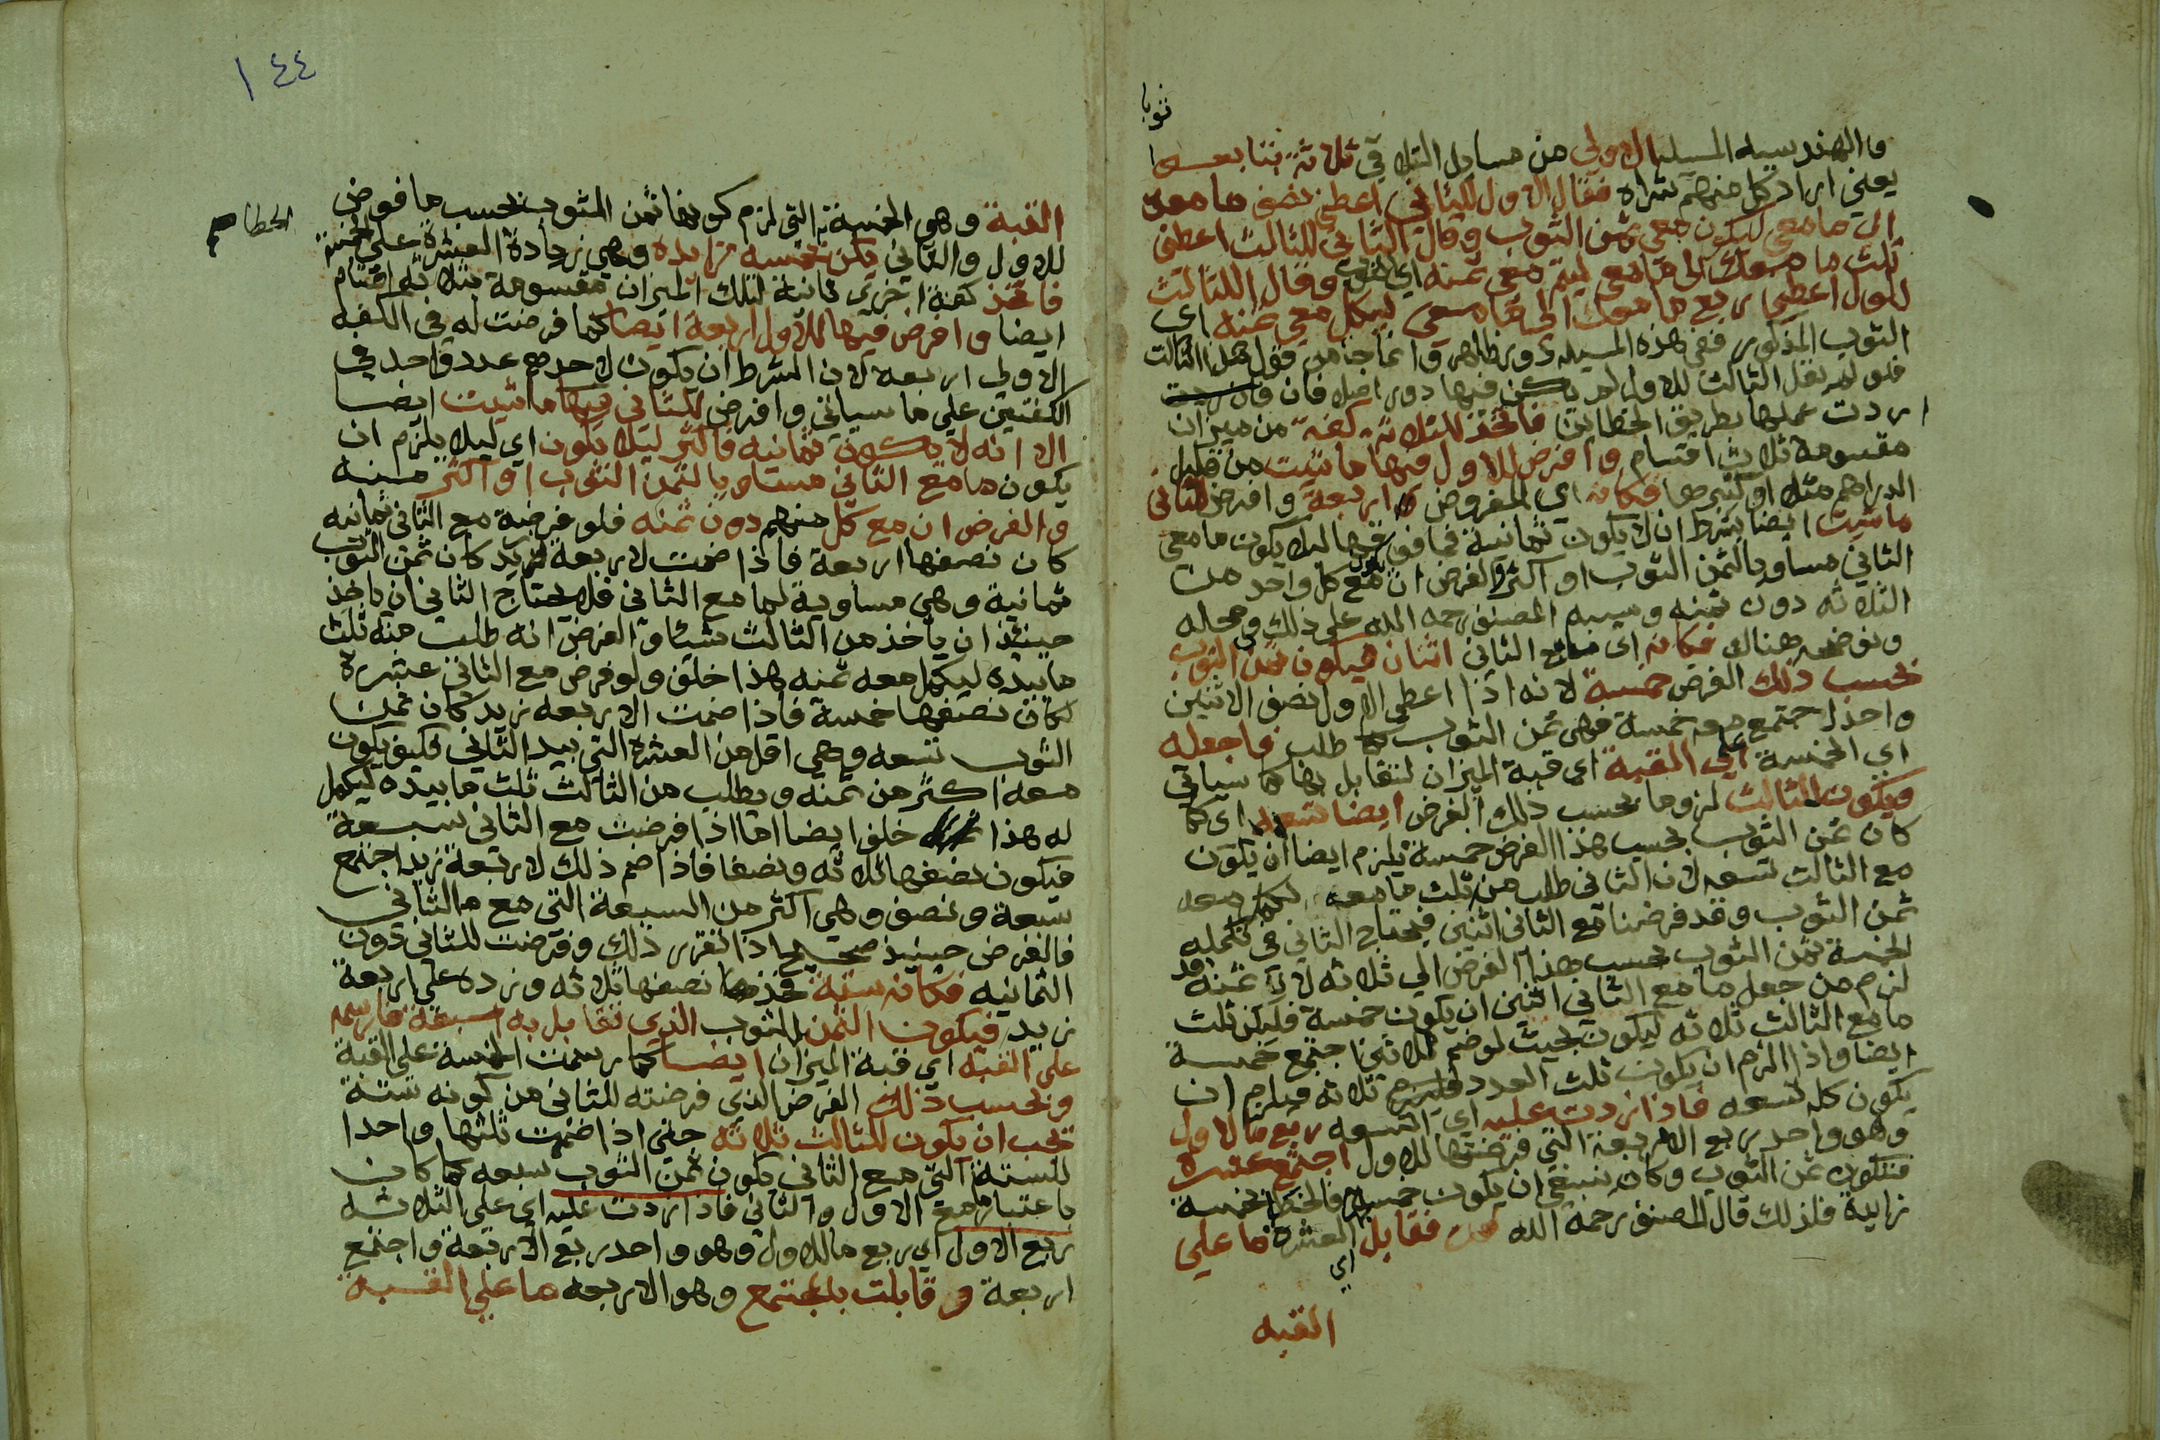 ثوبا
والهندسيه المسيله الاولي من مسايل التلاقي ثلاثة تبايعوا
يعني اراد كل منهم شراه فقال الاول للثاني اعطني نصف ما معك
الي ما معي ليكون معي ثمن الثوب وقال الثاني للثالث اعطني
ثلث ما معك الي ما معي ليتم معي ثمنه اي الثوب وقال الثالث
للاول اعطني ربع ما معك الي ما معي ليكمل معي ثمنه اي
الثوب المذكور ففي هذه المسيله دور ظاهر وانما جا من قول هذا الثالث
فلو لم يقل الثالث للاول لم يكن فيها دور اصلا فان
اردت عملها بطريق الخطاين فاتخذ للثلاثة كفة من ميزان
مقسومة ثلاث اقسام وافرض للاول فيها ما شيت من قليل
الدراهم مثلا او كثيرها فكانه اي المفروض اربعة وافرض للثاني
ما شيت ايضا بشرط ان لا يكون ثمانية فما فوقها ليلا يكون ما مع
الثاني مساويا لثمن الثوب او اكثر والفرض ان مع كل واحد من
الثلاثه دون ثمنه وسينبه المصنف رحمه الله على ذلك في محله
ونوضحه هناك فكانه اى ما مع الثاني اثنان فيكون ثمن الثوب
بحسب ذلك الفرض خمسة لانه اذا اعطى الاول نصف الاثنين
واحدا اجتمع معه خمسة فهي ثمن الثوب كما طلب فاجعله
اي الخمسة على القبة اي قبة الميزان لتقابل بها كما سياتي
ويكون للثالث لزوما بحسب ذلك الفرض ايضا تسعه اي كما
كان ثمن الثوب بحسب هذا الفرض خمسة يلزم ايضا ان يكون
مع الثالث تسعه لان الثاني طلب من ثلث ما معه ليكمل معه
ثمن الثوب وقد فرضنا مع الثاني اثنين فيحتاج الثاني في تكمله
الخمسة ثمن الثوب بحسب هذا الفرض الي ثلاثه لان ثمنه قد
لزم من جعل ما مع الثاني اثنين ان يكون خمسة فليكن ثلث
ما مع الثالث ثلاثه ليكون بحيث لو ضم للاثنين اجتمع خمسة
ايضا واذا لزم ان يكون ثلث العدد ثلاثه فيلزم ان
يكون كله تسعه فاذا زدت عليه اي التسعه ربع ما للاول
وهو واحد ربع الاربعة التي فرضتها للاول اجتمع عشرة
فتكون ثمن الثوب وكان ينبغي ان يكون خمسة فالخطا بخمسة
زايدة فلذلك قال المصنف رحمه الله فقابل اي العشرة ما علي
القبه
١٤٤
القبة وهي الخمسة التي لزم كونها ثمن الثوب بحسب ما فرض
للاول والثاني يكن بخمسة زايده وهي زيادة العشرة على الخمسة
الخطا
فاتخذ كفة اخري ثانية لتلك الميزان مقسومة بثلاثه اقسام
ايضا وافرض فيها للاول اربعة ايضا كما فرضت له في الكفه
الاولي اربعه لان الشرط ان يكون لاحدهم عدد واحد في
الكفتين علي ما سياتي وافرض للثاني فيها ما شيت ايضا
الا انه لا يكون ثمانيه فاكثر ليلا يكون اي ليلا يلزم ان
يكون ما مع الثاني مساويا لثمن الثوب او اكثر منه
والفرض ان مع كل منهم دون ثمنه فلو فرضة مع الثاني ثمانيه
كان نصفها اربعة فاذا ضمت لاربعة زيد كان ثمن الثوب
ثمانية وهي مساوية لما مع الثاني فلا يحتاج الثاني ان ياخذ
حينئذ ان يأخذ من الثالث شيئا والفرض انه طلب منه ثلث
ما بيده ليكمل معه ثمنه هذا خلف ولو فرض مع الثاني عشرة
لكان نصفها خمسة فاذا ضمت الاربعه زيد كان ثمن
الثوب تسعه وهي اقل من العشرة التي بيد الثاني فكيف يكون
معه اكثر من ثمنه ويطلب من الثالث ثلث ما بيده ليكمل
له هذا خلف ايضا اما اذا فرضت مع الثاني سبعة
فيكون نصفها ثلاثه ونصفا فاذا ضم ذلك لاربعة زيد اجتمع
سبعة ونصف وهي اكثر من السبعة التي مع الثاني
فالفرض حينيذ صحيح اذا تقرر ذلك وفرضت للثاني دون
الثمانيه فكانه ستة فخذ نصفها ثلاثه وزده علي اربعة
زيد فيكون الثمن للثوب الذي تقابل به سبعة فارسمه
علي القبه اي قبة الميزان ايضا كما رسمت الخمسة على القبة
وبحسب ذلك الفرض الذي فرضته للثاني من كونه ستة
يجب ان يكون للثالث ثلاثة حتى اذا ضمت ثلثها واحدا
للستة التي مع الثاني يكون ثمن الثوب سبعه كما كان
باعتبار ما مع الاول والثاني فاذا زدت عليه اي علي الثلاثه
ربع الاول اي ربع ما للاول وهو واحد ربع الاربعة واجتمع
اربعة وقابلت بالمجتمع وهو الاربعه ما علي القبه